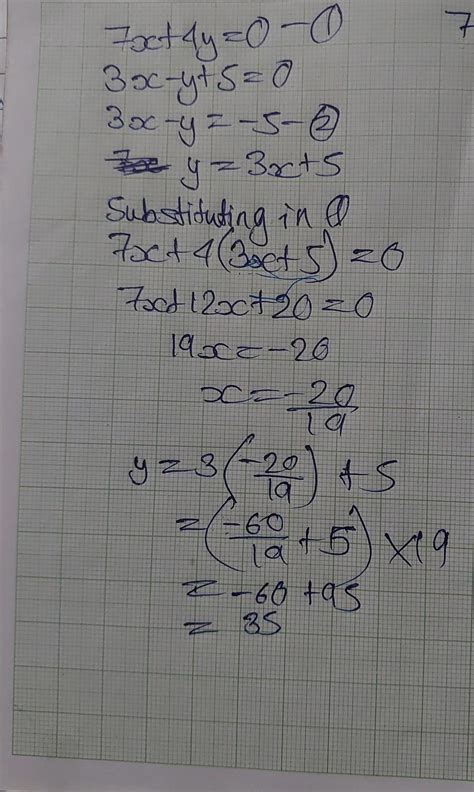 7x+4y=0 -①
7
3x-y+5=0
3x-y=-5-②
y=3x+5
Substituting in ①
7x+4(3x+5)=0
7x+12x+20=0
19x=-20
x=-20/19
y=3(-20/19)+5
=(-60/19+5)×19
=-60+95
=35